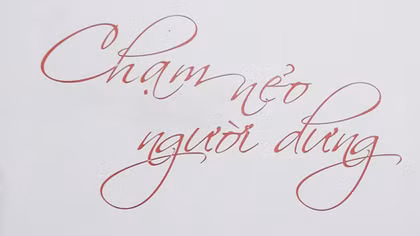 Chạm nẻo
người dưng